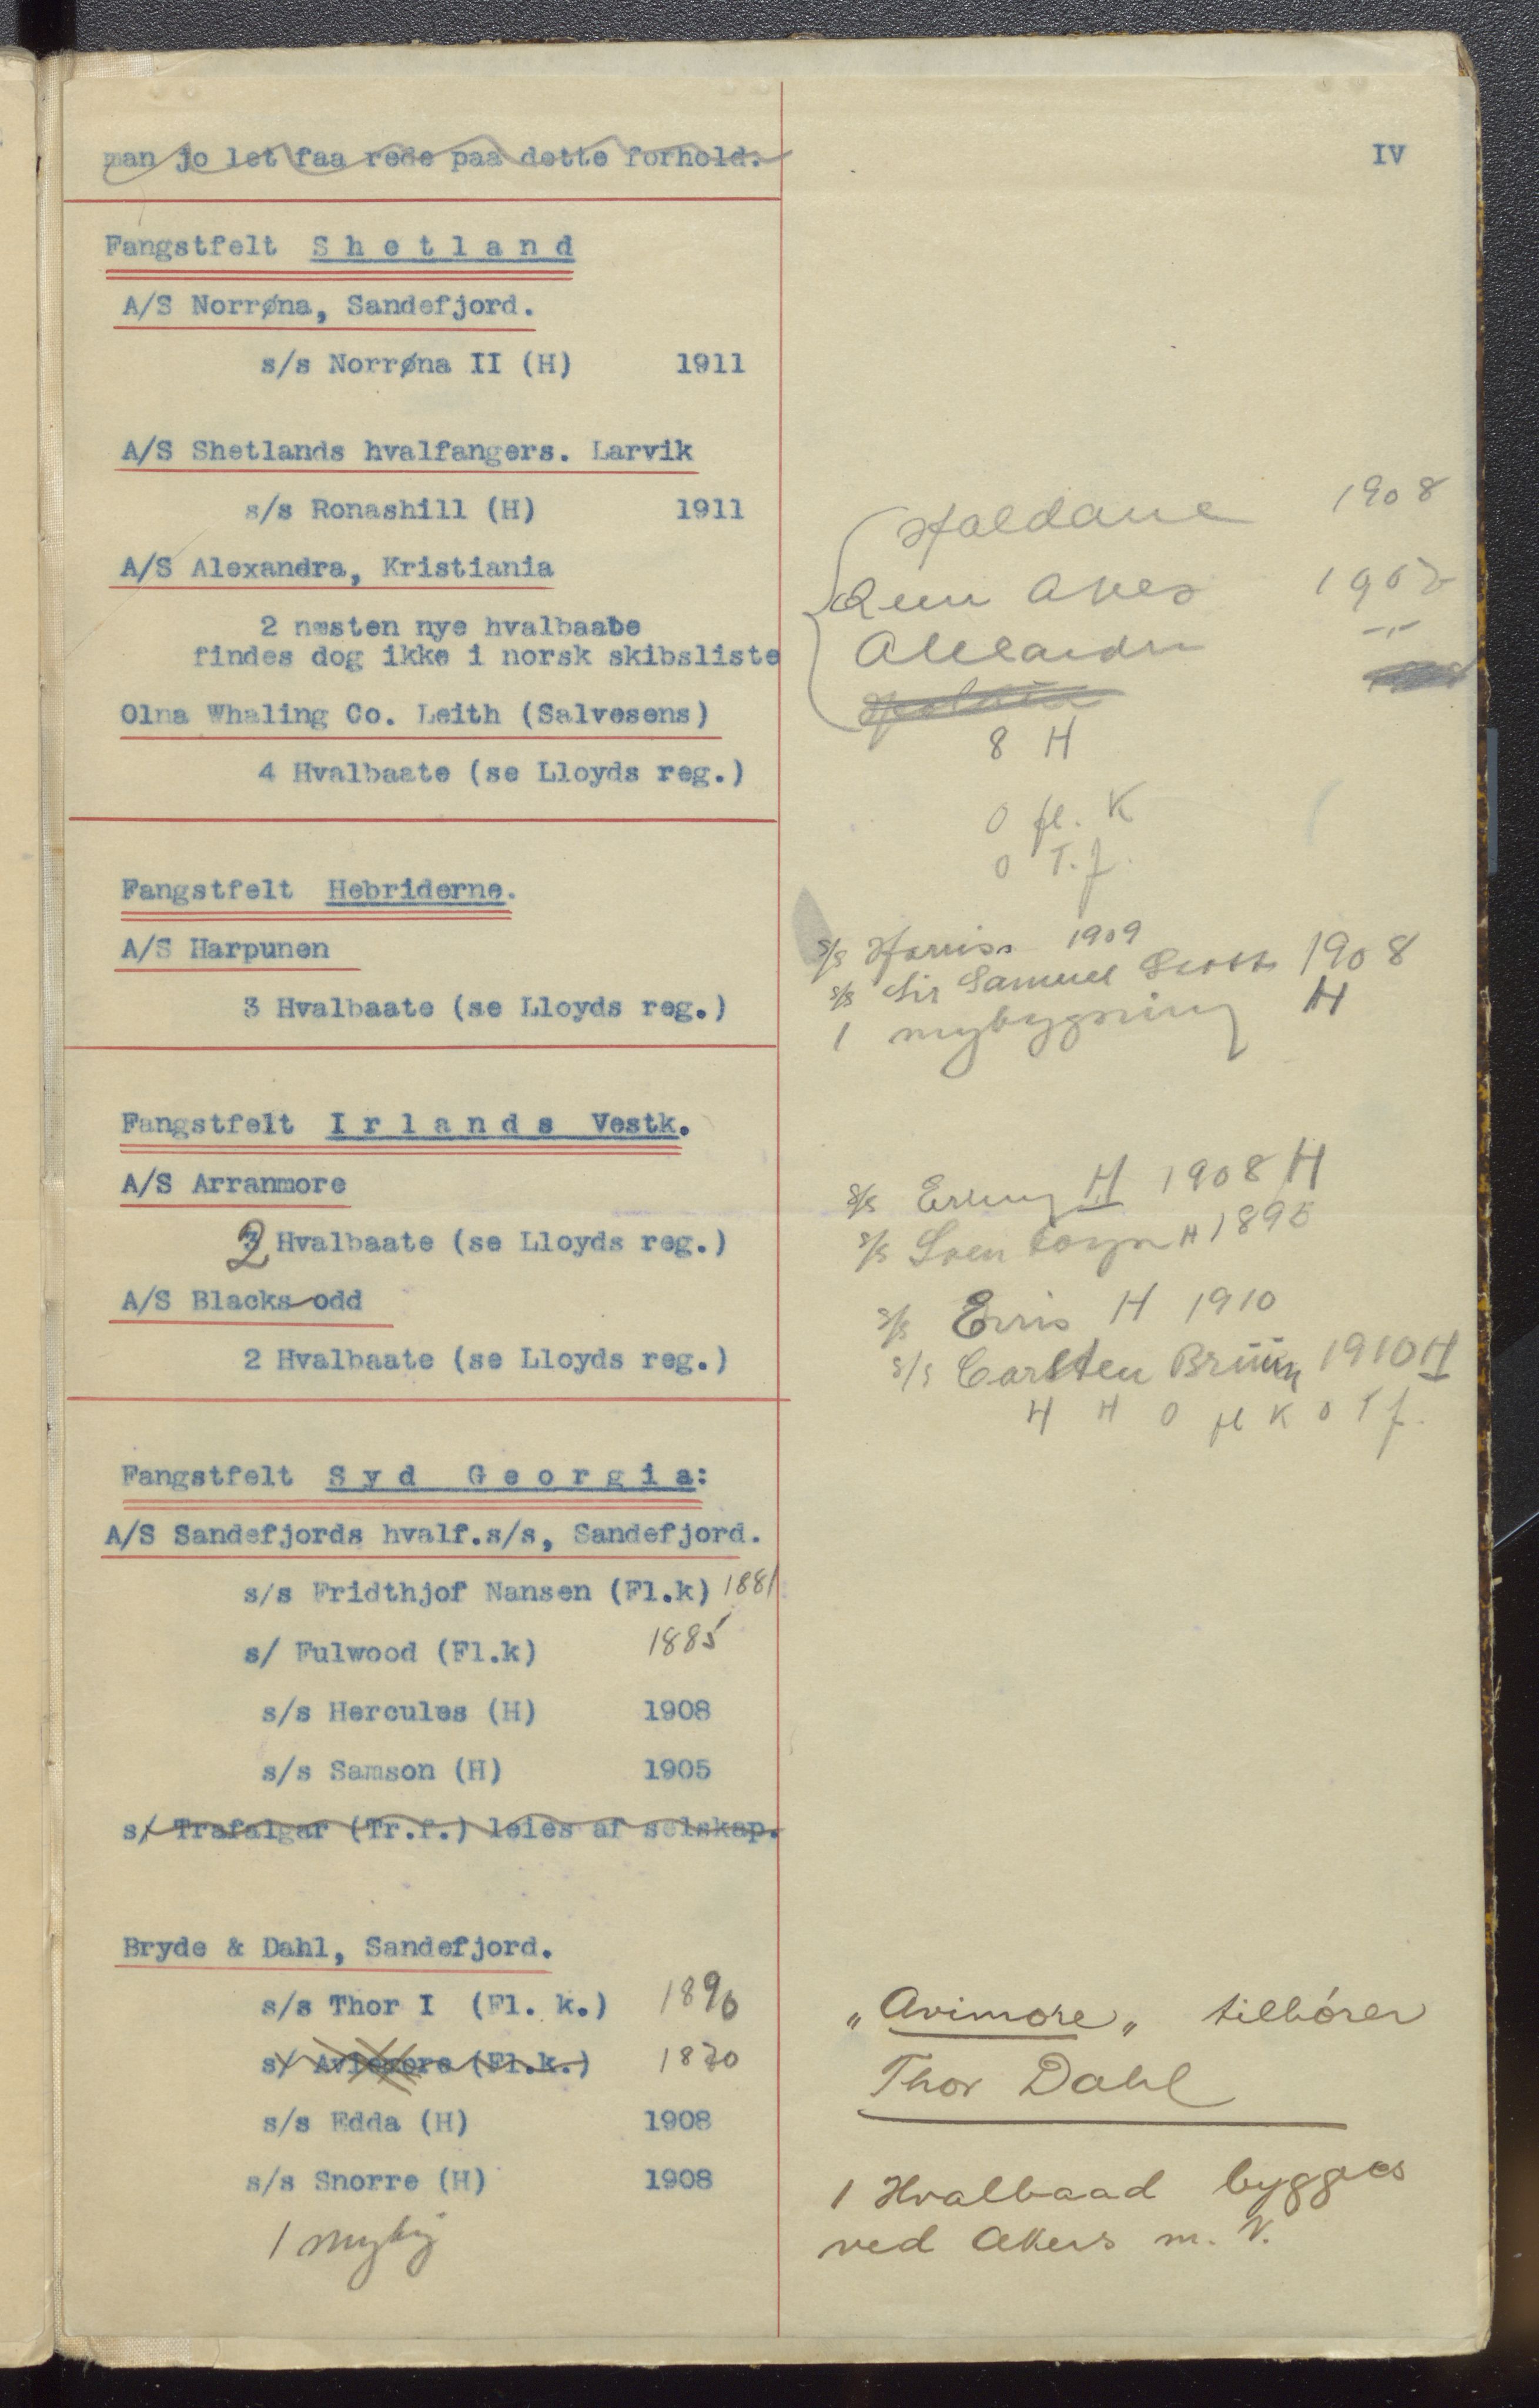 man jo let faa rede paa dette forhold.
IV
Fangstfelt Shetland
A/S Norrøna, Sandefjord.
s/s Norrøna II (H) 1911
A/S Shetlands hvalfangers. Larvik
s/s Ronashill (H) 1911
Haldane 1908
A/S Alexandra, Kristiania
1907
2 næsten nye hvalbaate
findes dog ikke i norsk skibsliste
Olna Whaling Co. Leith (Salvesens)
8 H
4 Hvalbaate (se Lloyds reg.)
0 fl. K
0 T.f.
Fangstfelt Hebriderne.
A/S Harpunen
s/s Harriss 1909
s/s Sir Samuel Scott 1908
3 Hvalbaate (se Lloyds reg.)
1 nybygning H
Fangstfelt Irlands Vestk.
A/S Arranmore
s/s Erling H 1908 H
2 Hvalbaate (se Lloyds reg.)
s/s Sven Foyn H 1895
A/S Blacks odd
s/s Erris H 1910
2 Hvalbaate (se Lloyds reg.)
s/s Carsten Bruun 1910 H
4 H 0 fl K 0 T f.
Fangstfelt Syd Georgia:
A/S Sandefjords hvalf.s/s, Sandefjord.
s/s Fridthjof Nansen (Fl.k) 1881
s/ Fulwood (Fl.k) 1885
s/s Hercules (H) 1908
s/s Samson (H) 1905
s/ Trafalgar (Tr.f.) leies af selskap.
Bryde & Dahl, Sandefjord.
s/s Thor I (Fl. k.) 1890
"Avimore" tilhører
s/ (Fl.k.) 1870
Thor Dahl
s/s Edda (H) 1908
s/s Snorre (H) 1908
1 Hvalbaad bygges
1 nybyg
ved Akers m. V.